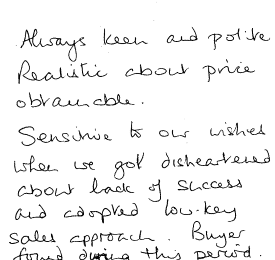 Always keen and polite
Realistic about price
obtainable.
Sensitive to our wishes
when we got disheartened
about lack of success
and adopted low-key
sales approach. Buyer
found during this period.